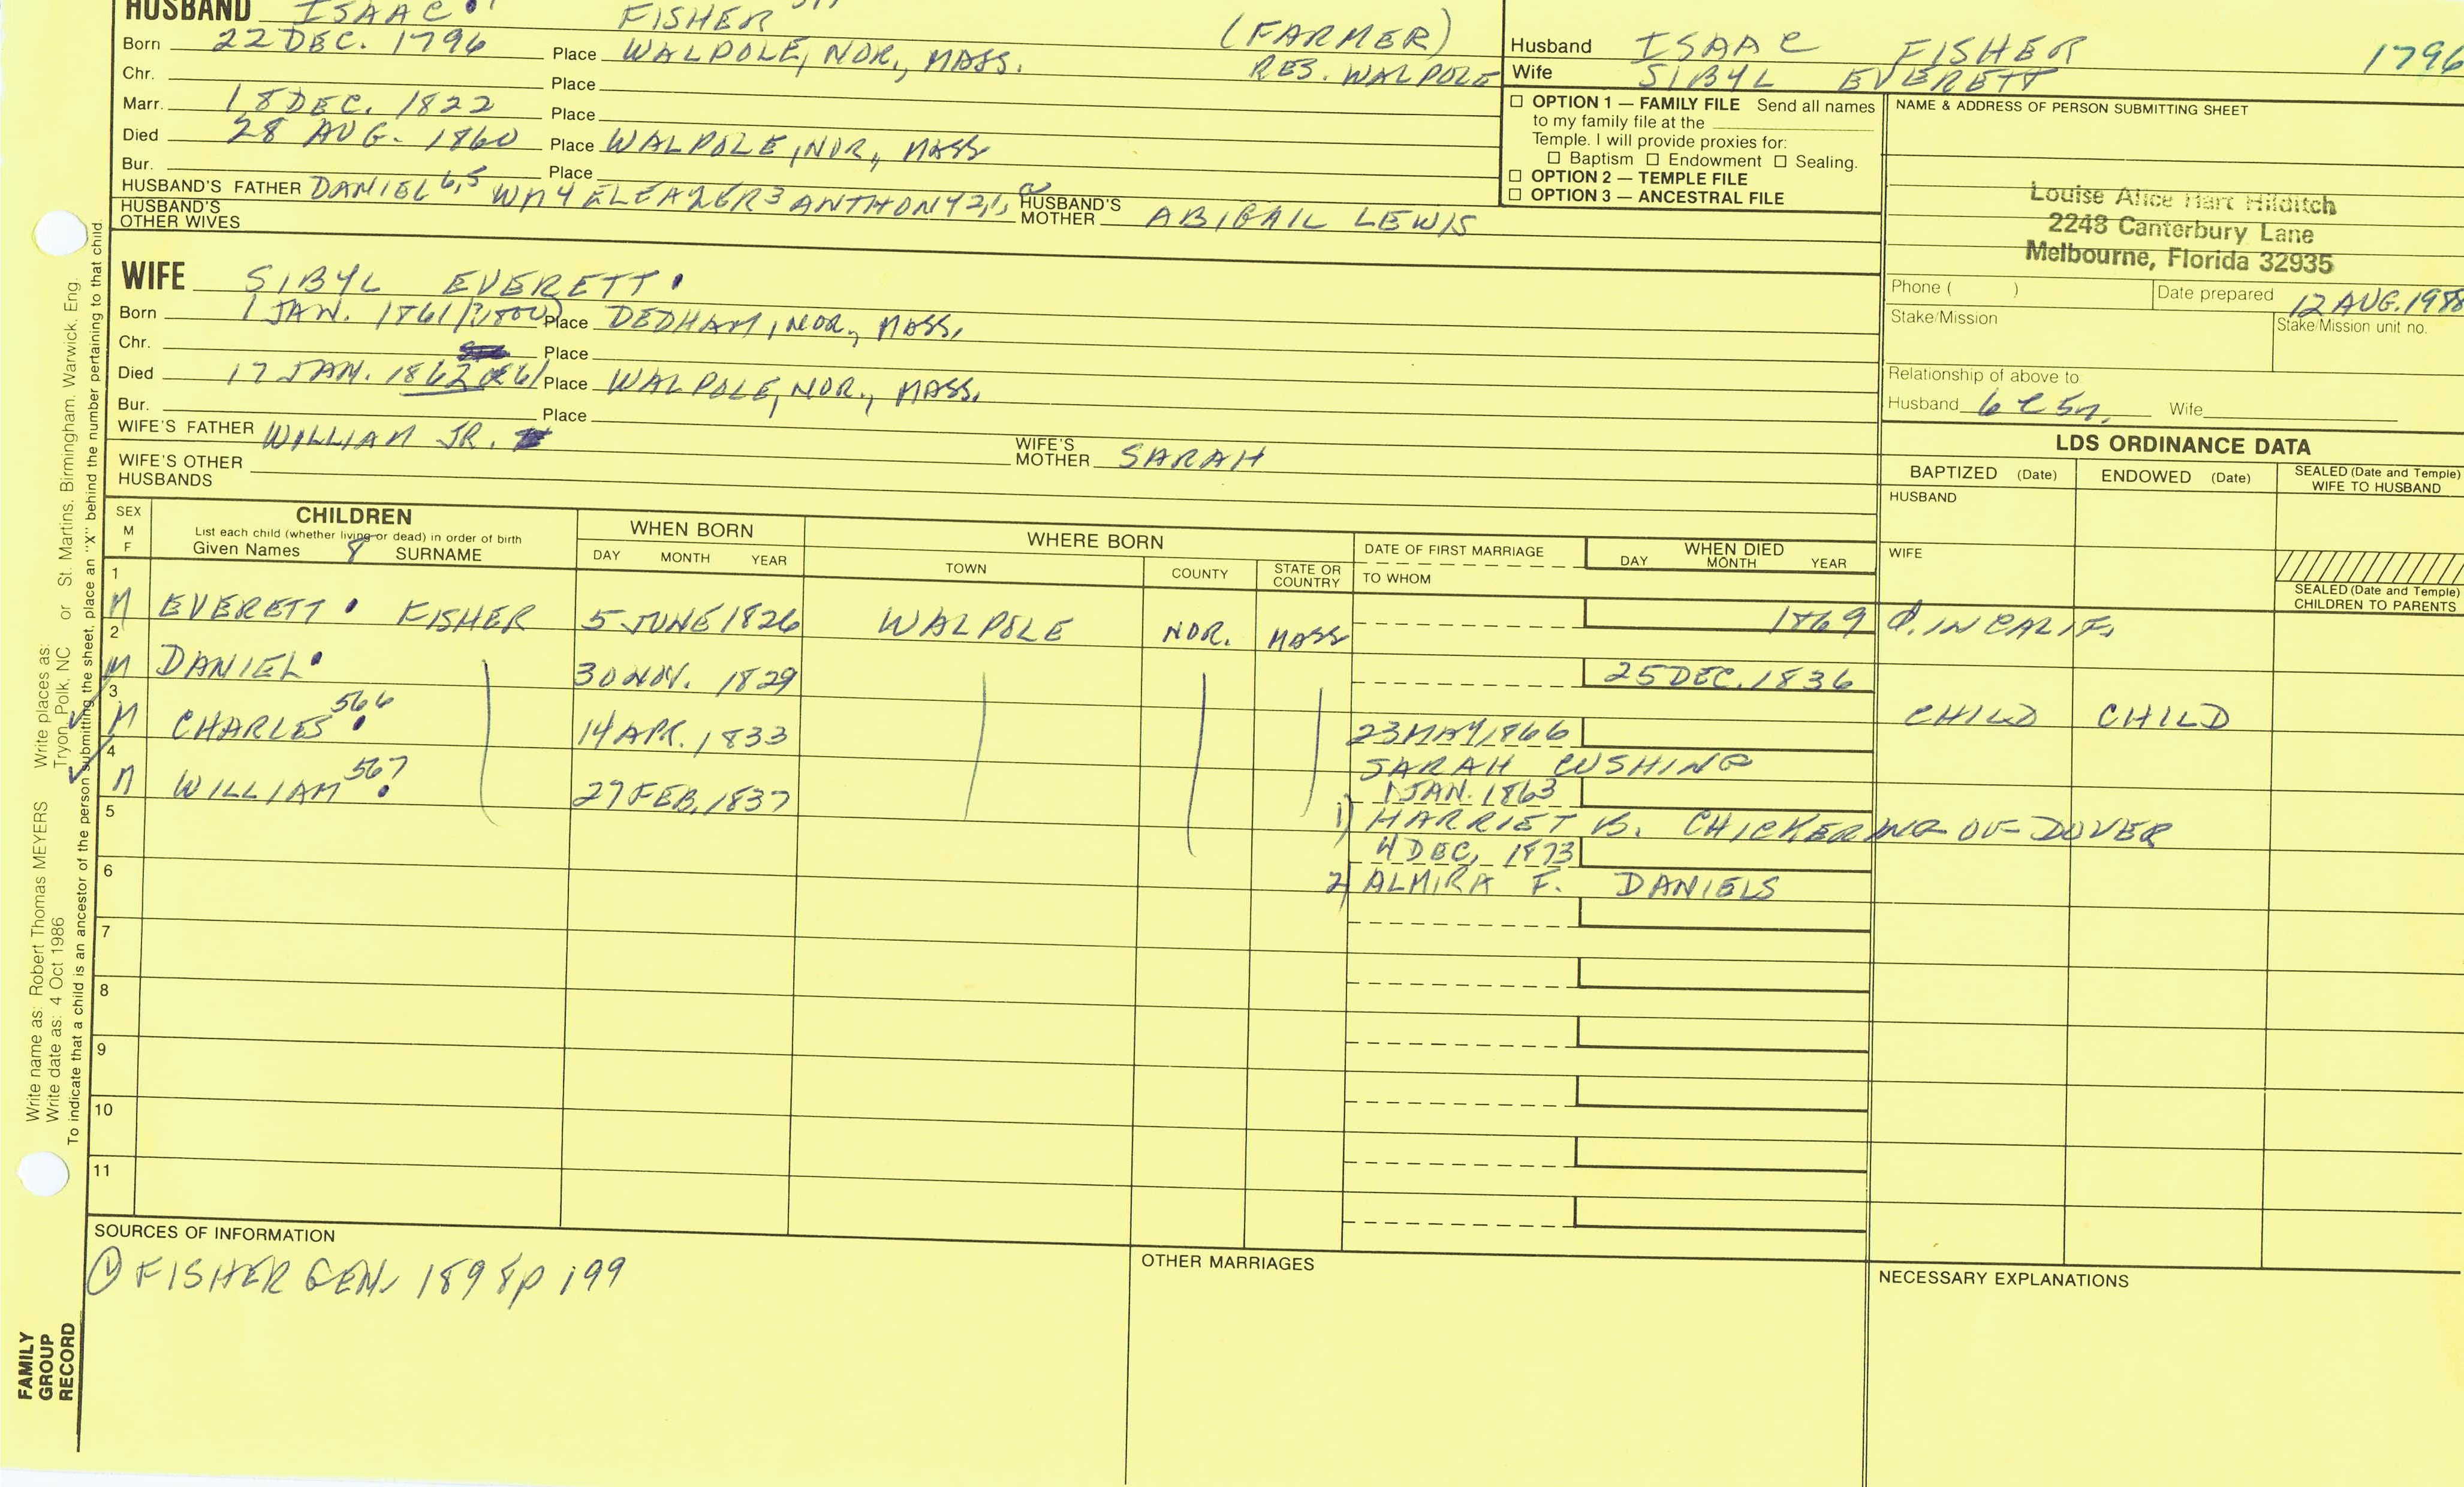 HUSBAND ISAAC FISHER
Born 22 DEC. 1796 Place WALPOLE, NOR., MASS. (FARMER)
RES. WALPOLE
Chr. Place
Marr. 18 DEC. 1822 Place
Died 28 AUG. 1860 Place WALPOLE, NOR., MASS
Bur. Place
HUSBAND'S FATHER DANIEL 6,5 WM 4 ELEAZER 3 ANTHONY 2,1 HUSBAND'S MOTHER ABIGAIL LEWIS
HUSBAND'S OTHER WIVES
Husband ISAAC FISHER 1796
Wife SIBYL EVERETT
☐ OPTION 1 — FAMILY FILE Send all names
to my family file at the
Temple. I will provide proxies for:
☐ Baptism ☐ Endowment ☐ Sealing.
☐ OPTION 2 — TEMPLE FILE
☐ OPTION 3 — ANCESTRAL FILE
NAME & ADDRESS OF PERSON SUBMITTING SHEET
Louise Alice Hart Hilditch
2248 Canterbury Lane
Melbourne, Florida 32935
Phone ( ) Date prepared 12 AUG. 1988
Stake/Mission Stake/Mission unit no.
Relationship of above to
Husband 6 C 5 Wife
WIFE SIBYL EVERETT
Born 1 JAN. 1861/?1800) Place DEDHAM, NOR., MASS.
Chr. Place
Died 17 JAN. 1862 OR 61 Place WALPOLE, NOR., MASS.
Bur. Place
WIFE'S FATHER WILLIAM JR. WIFE'S MOTHER SARAH
WIFE'S OTHER HUSBANDS
LDS ORDINANCE DATA
BAPTIZED (Date) ENDOWED (Date) SEALED (Date and Temple) WIFE TO HUSBAND
HUSBAND
WIFE
SEALED (Date and Temple) CHILDREN TO PARENTS
SEX M F
CHILDREN
List each child (whether living or dead) in order of birth
Given Names 8 SURNAME
WHEN BORN
DAY MONTH YEAR
WHERE BORN
TOWN COUNTY STATE OR COUNTRY
DATE OF FIRST MARRIAGE
TO WHOM
WHEN DIED
DAY MONTH YEAR
1 M EVERETT FISHER 5 JUNE 1826 WALPOLE NOR. MASS 1869 D. IN CALIF.
2 M DANIEL 30 NOV. 1829 25 DEC. 1836 CHILD CHILD
3 M CHARLES 566 14 APR. 1833 23 MAY 1866
SARAH CUSHING
4 M WILLIAM 567 27 FEB. 1837 1 JAN. 1863
1) HARRIET B. CHICKERING OF DOVER
5 4 DEC, 1873
2) ALMIRA F. DANIELS
6
7
8
9
10
11
SOURCES OF INFORMATION
① FISHER GEN. 1898 p 199
OTHER MARRIAGES
NECESSARY EXPLANATIONS
Write name as: Robert Thomas MEYERS Write places as: Tryon, Polk, NC or St. Martins, Birmingham, Warwick, Eng.
Write date as: 4 Oct 1986
To indicate that a child is an ancestor of the person submitting the sheet, place an "X" behind the number pertaining to that child.
FAMILY
GROUP
RECORD